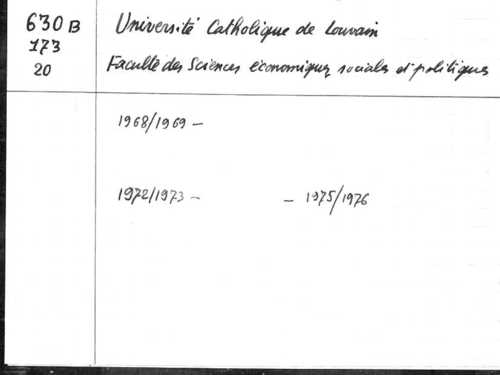 630 B
173
20
Université Catholique de Louvain
Faculté des Sciences économiques sociales et politiques
1968/1969 -
1972/1973 - - 1975/1976